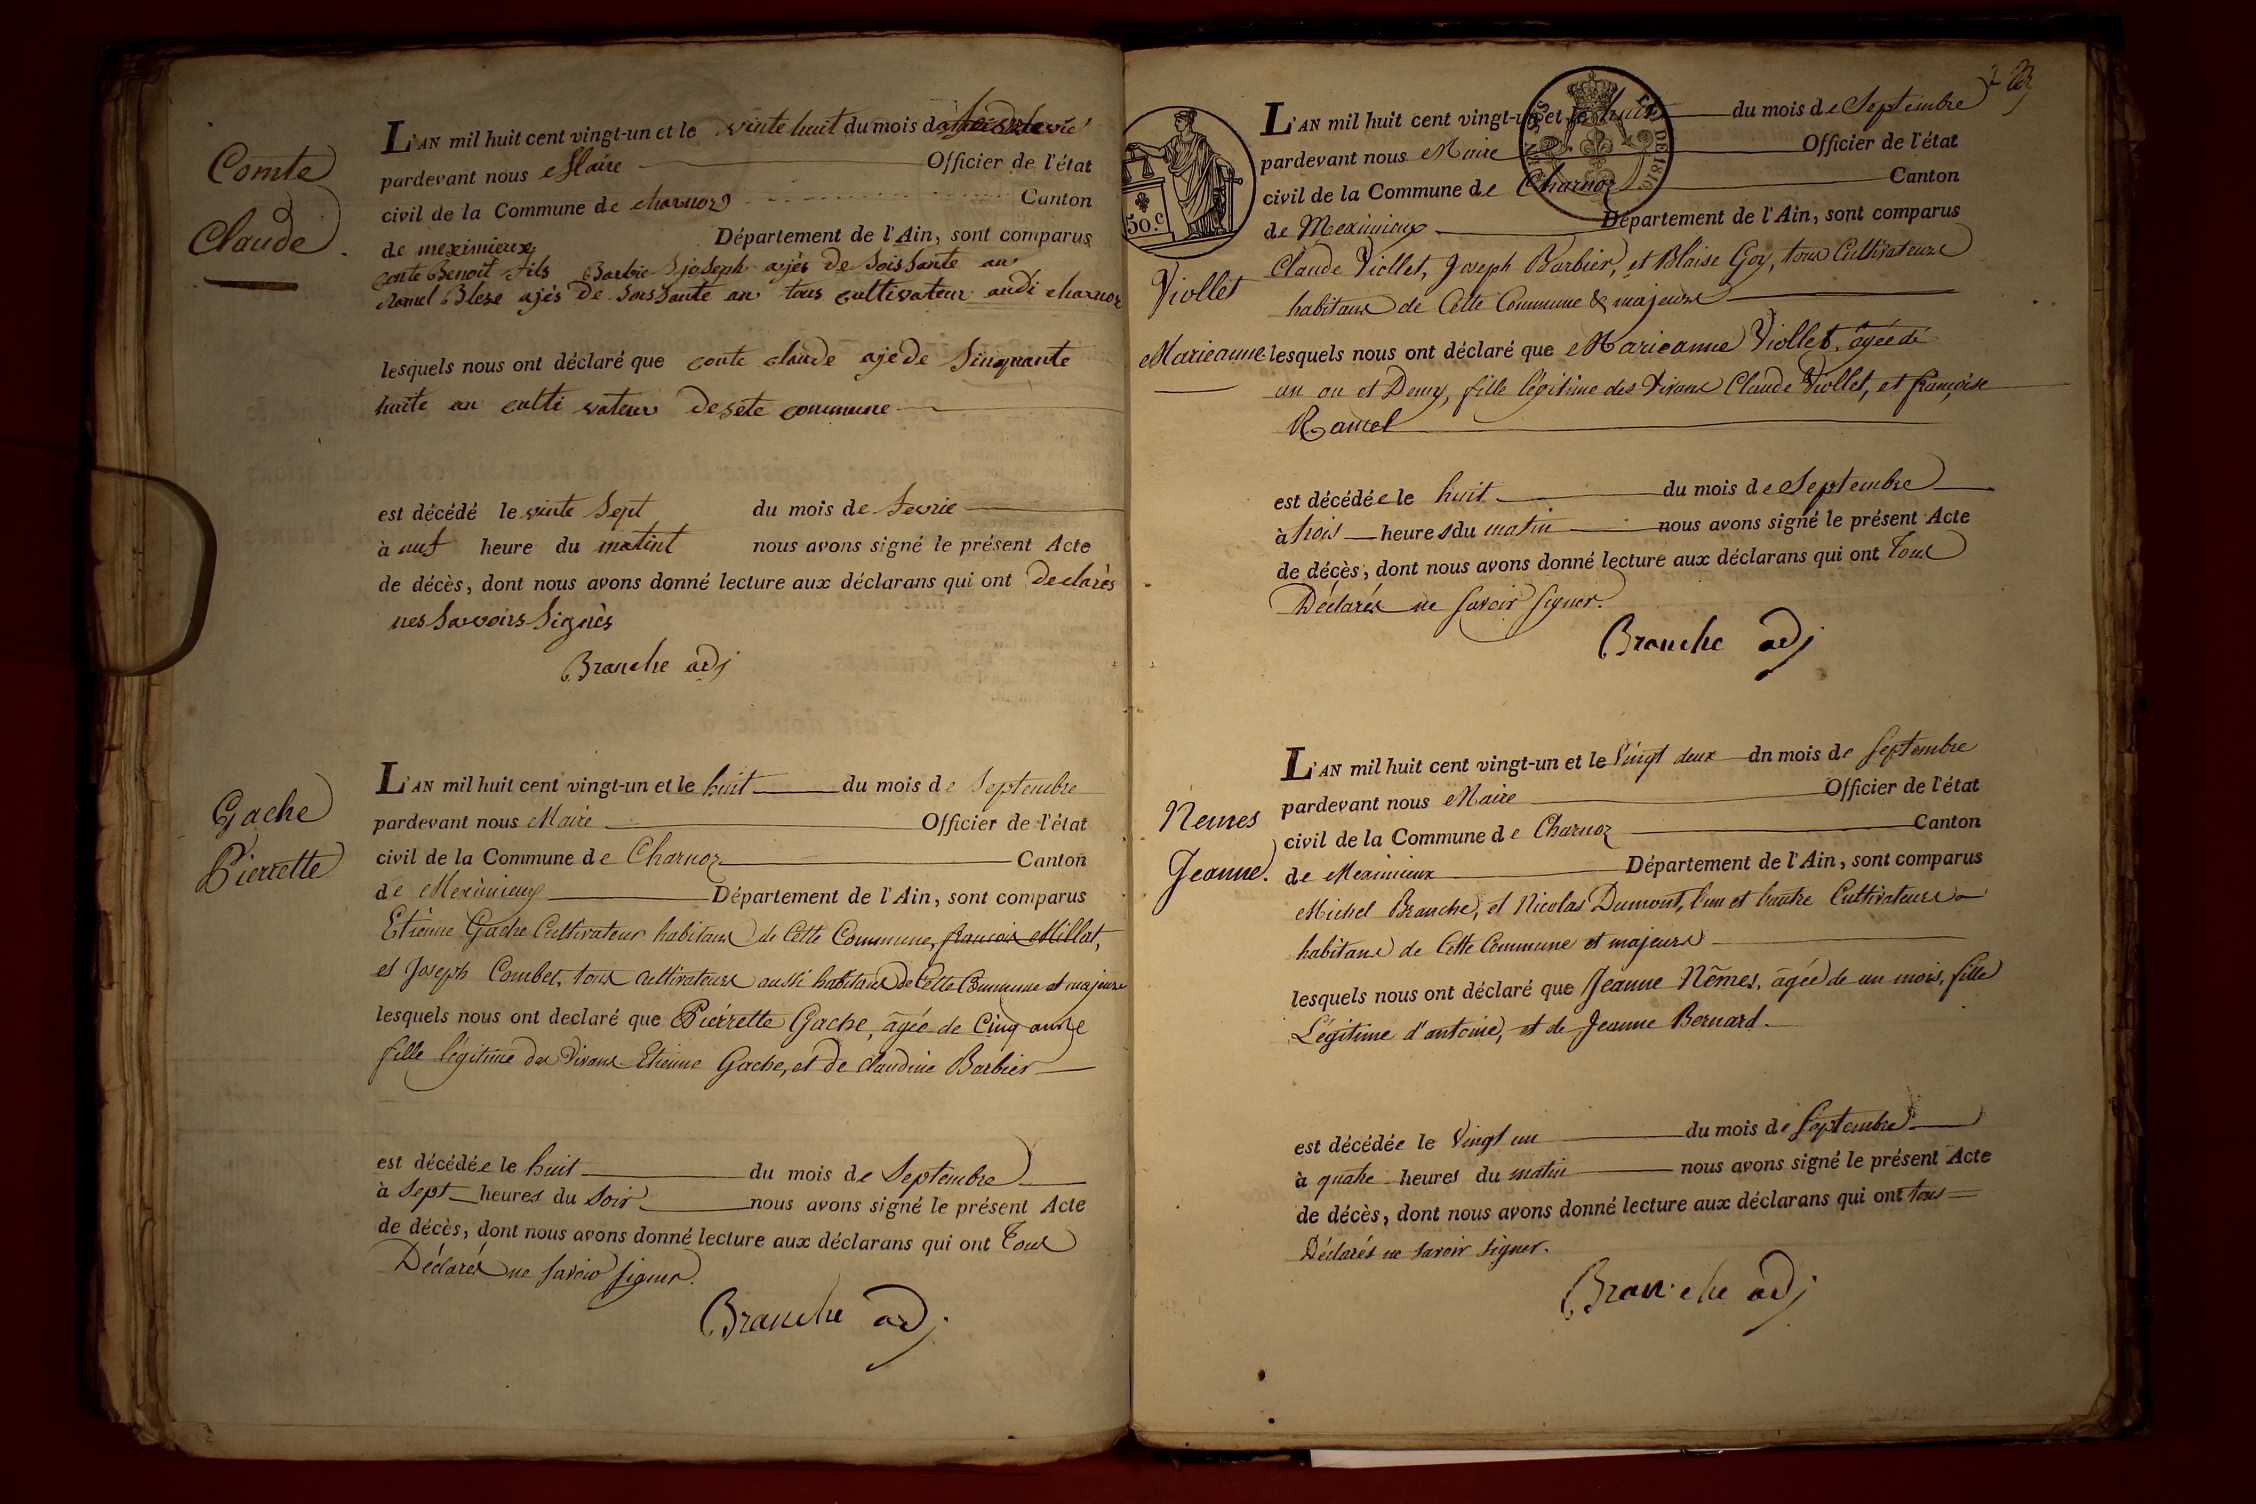 Comte
Claude
L'AN mil huit cent vingt-un et le vinte huit du mois d
pardevant nous Maire Officier de l'état
civil de la Commune de charnoz Canton
de meximieux Département de l'Ain, sont comparus
conte Benoit fils Barbie joseph ajès de soissante an
Blese ajés de soissante an tous cultivateur audi charnoz
lesquels nous ont déclaré que conte claude aje de sinquante
huite an culti vateur de sete commune
est décédé le vinte sept du mois de fevrie
à neuf heure du matint nous avons signé le présent Acte
de décès, dont nous avons donné lecture aux déclarans qui ont declarés
nes savoirs signès
Branche adj
Gache
Pierrette
L'AN mil huit cent vingt-un et le huit du mois de Septembre
pardevant nous Maire Officier de l'état
civil de la Commune de Charnoz Canton
de Meximieux Département de l'Ain, sont comparus
Etienne Gache Cultivateur habitans de Cette Commune, francois Millat,
et Joseph Combet, tous cultivateurs aussi habitans de Cette Commune et majeurs
lesquels nous ont declaré que Pierrette Gache, âgée de Cinq ans
fille légitime des vivans Etienne Gache, et de claudine Barbier
est décédée le huit du mois de Septembre
à sept heures du soir nous avons signé le présent Acte
de décès, dont nous avons donné lecture aux déclarans qui ont Tous
Déclarés ne savoir signer.
Branche adj
50 c.
Viollet
Marieanne
L'AN mil huit cent vingt-un et le huit du mois de Septembre
pardevant nous Maire Officier de l'état
civil de la Commune de Charnoz Canton
de Meximieux Département de l'Ain, sont comparus
Claude Viollet, Joseph Barbier, et Blaise Goy, tous Cultivateurs
habitans de Cette Commune & majeurs
lesquels nous ont déclaré que Marieanne Viollet, âgée de
un an et Demy, fille légitime des vivans Claude Viollet, et françoise
Ramel
est décédée le huit du mois de Septembre
à trois heures du matin nous avons signé le présent Acte
de décès, dont nous avons donné lecture aux déclarans qui ont Tous
Déclarés ne savoir signer.
Branche adj
Nemes
Jeanne.
L'AN mil huit cent vingt-un et le Vingt deux dn mois de Septembre
pardevant nous Maire Officier de l'état
civil de la Commune de Charnoz Canton
de Meximieux Département de l'Ain, sont comparus
Michel Branche, et Nicolas Dumont, l'un et l'autre Cultivateurs
habitans de Cette Commune et majeurs
lesquels nous ont déclaré que Jeanne Nêmes, âgée de un mois, fille
Légitime d'antoine, et de Jeanne Bernard.
est décédée le Vingt un du mois de Septembre
à quatre heures du matin nous avons signé le présent Acte
de décès, dont nous avons donné lecture aux déclarans qui ont tous
Déclarés ne savoir signer.
Branche adj